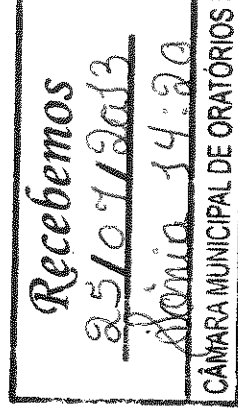 Recebemos
25/07/2013
Sônia 14:20
CÂMARA MUNICIPAL DE ORATÓRIOS